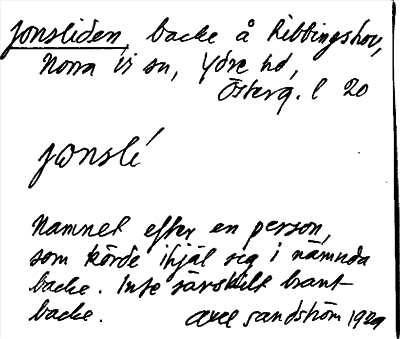 Jonsliden, backe å Ribbingshov,
Norra Vi sn, Ydre hd,
Österg. l 20
jonslé
Namnet efter en person,
som körde ihjäl sig i nämnda
backe. Inte särskilt brant
backe. Axel Sandström 1929